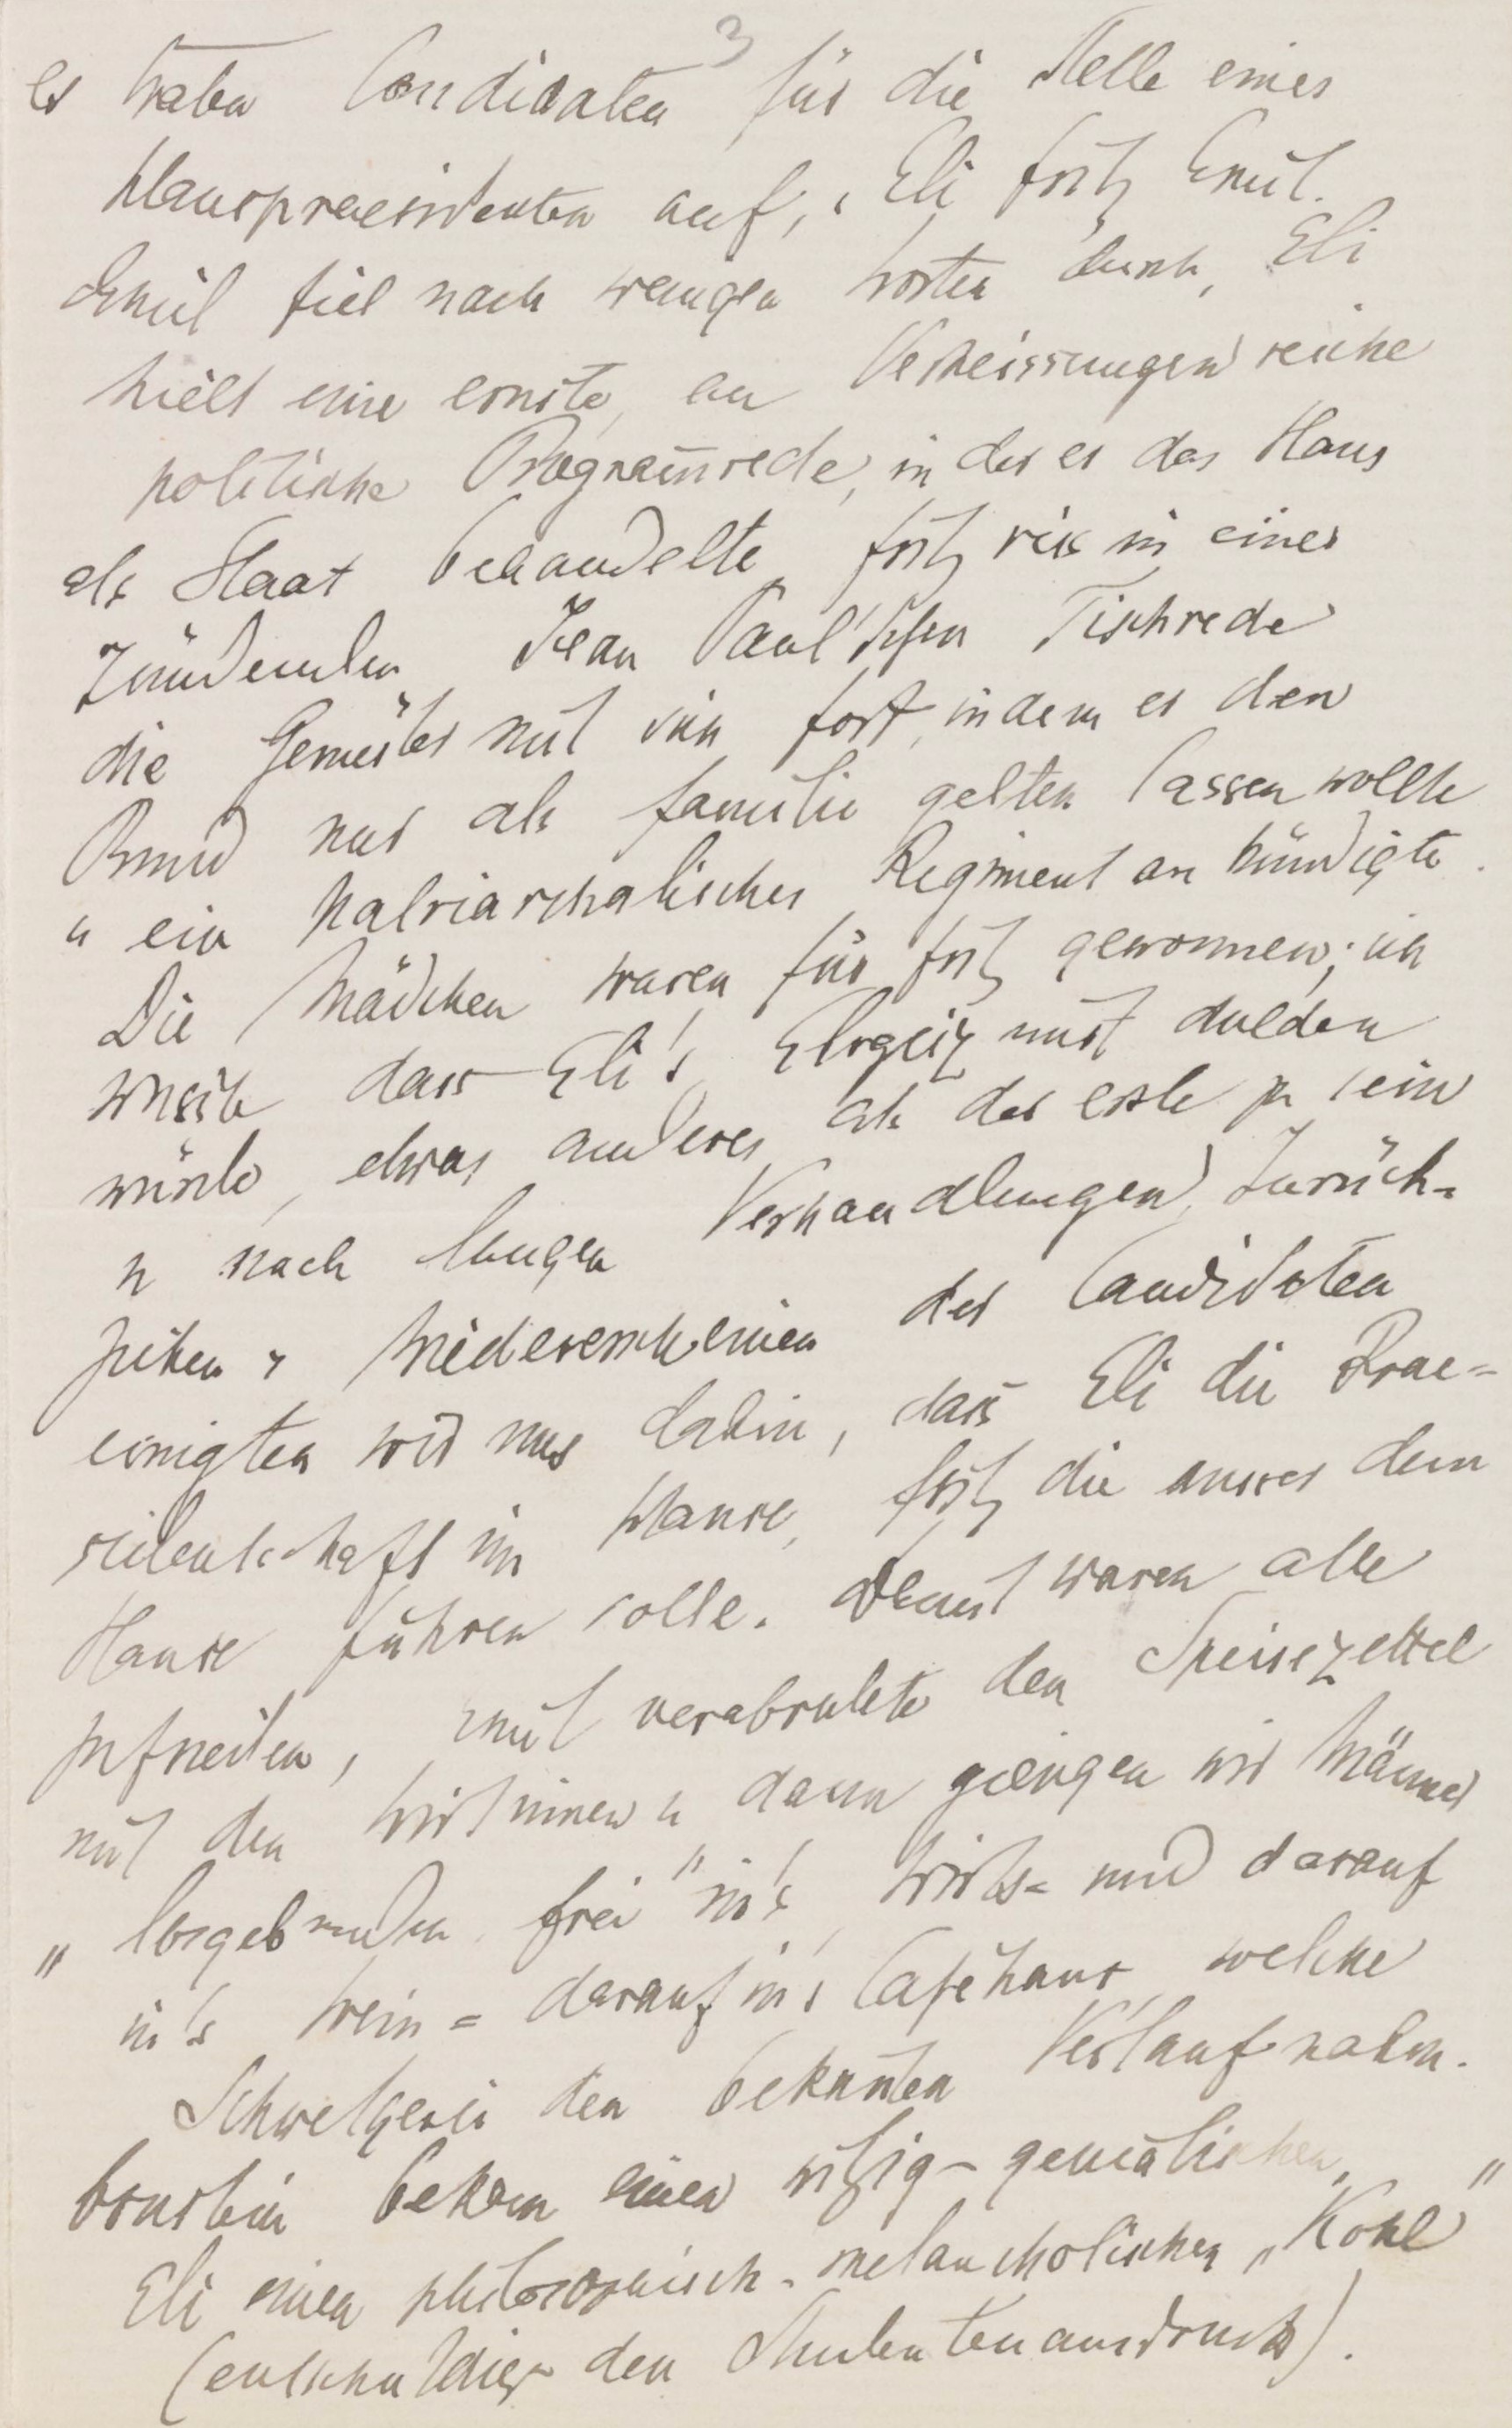 3
Es traten Candidaten für die Stelle eines
Hauspraesidenten auf, Eli Fritz Emil.
Emil fiel nach wenigen Worten durch, Eli
hielt eine ernste, an Verheissungen reiche
politische Programmrede, in der er das Haus
als Staat behandelte, Fritz riss in einer
zündenden Jean Paul'schen Tischrede
die Gemüter mit sich fort, indem er den
Bund nur als Familie gelten lassen wollte
u ein patriarchalisches Regiment ankündigte.
Die Mädchen waren für Fritz gewonnen; ich
wusste dass Eli's Ehrgeiz nicht dulden
würde, etwas anderes als der erste zu sein
u nach langen Verhandlungen, Zurück-
ziehen u Wiedererscheinen der Candidaten
einigten wir uns dahin, dass Eli die Prae-
sidentschaft im Hause, Fritz die ausser dem
Hause führen solle. Damit waren alle
zufrieden, Emil verabredete den Speisezettel
mit den Wirtinnen u dann giengen wir Männer
„losgebunden frei" in's Wirts- und darauf
in's Wein- darauf in's Caféhaus, welche
Schwelgerei den bekannten Verlauf nahm.
bekam einen witzig-genialischen,
Eli einen philosophisch-melancholischen „Kohl"
(entschuldige den Studentenausdruck).